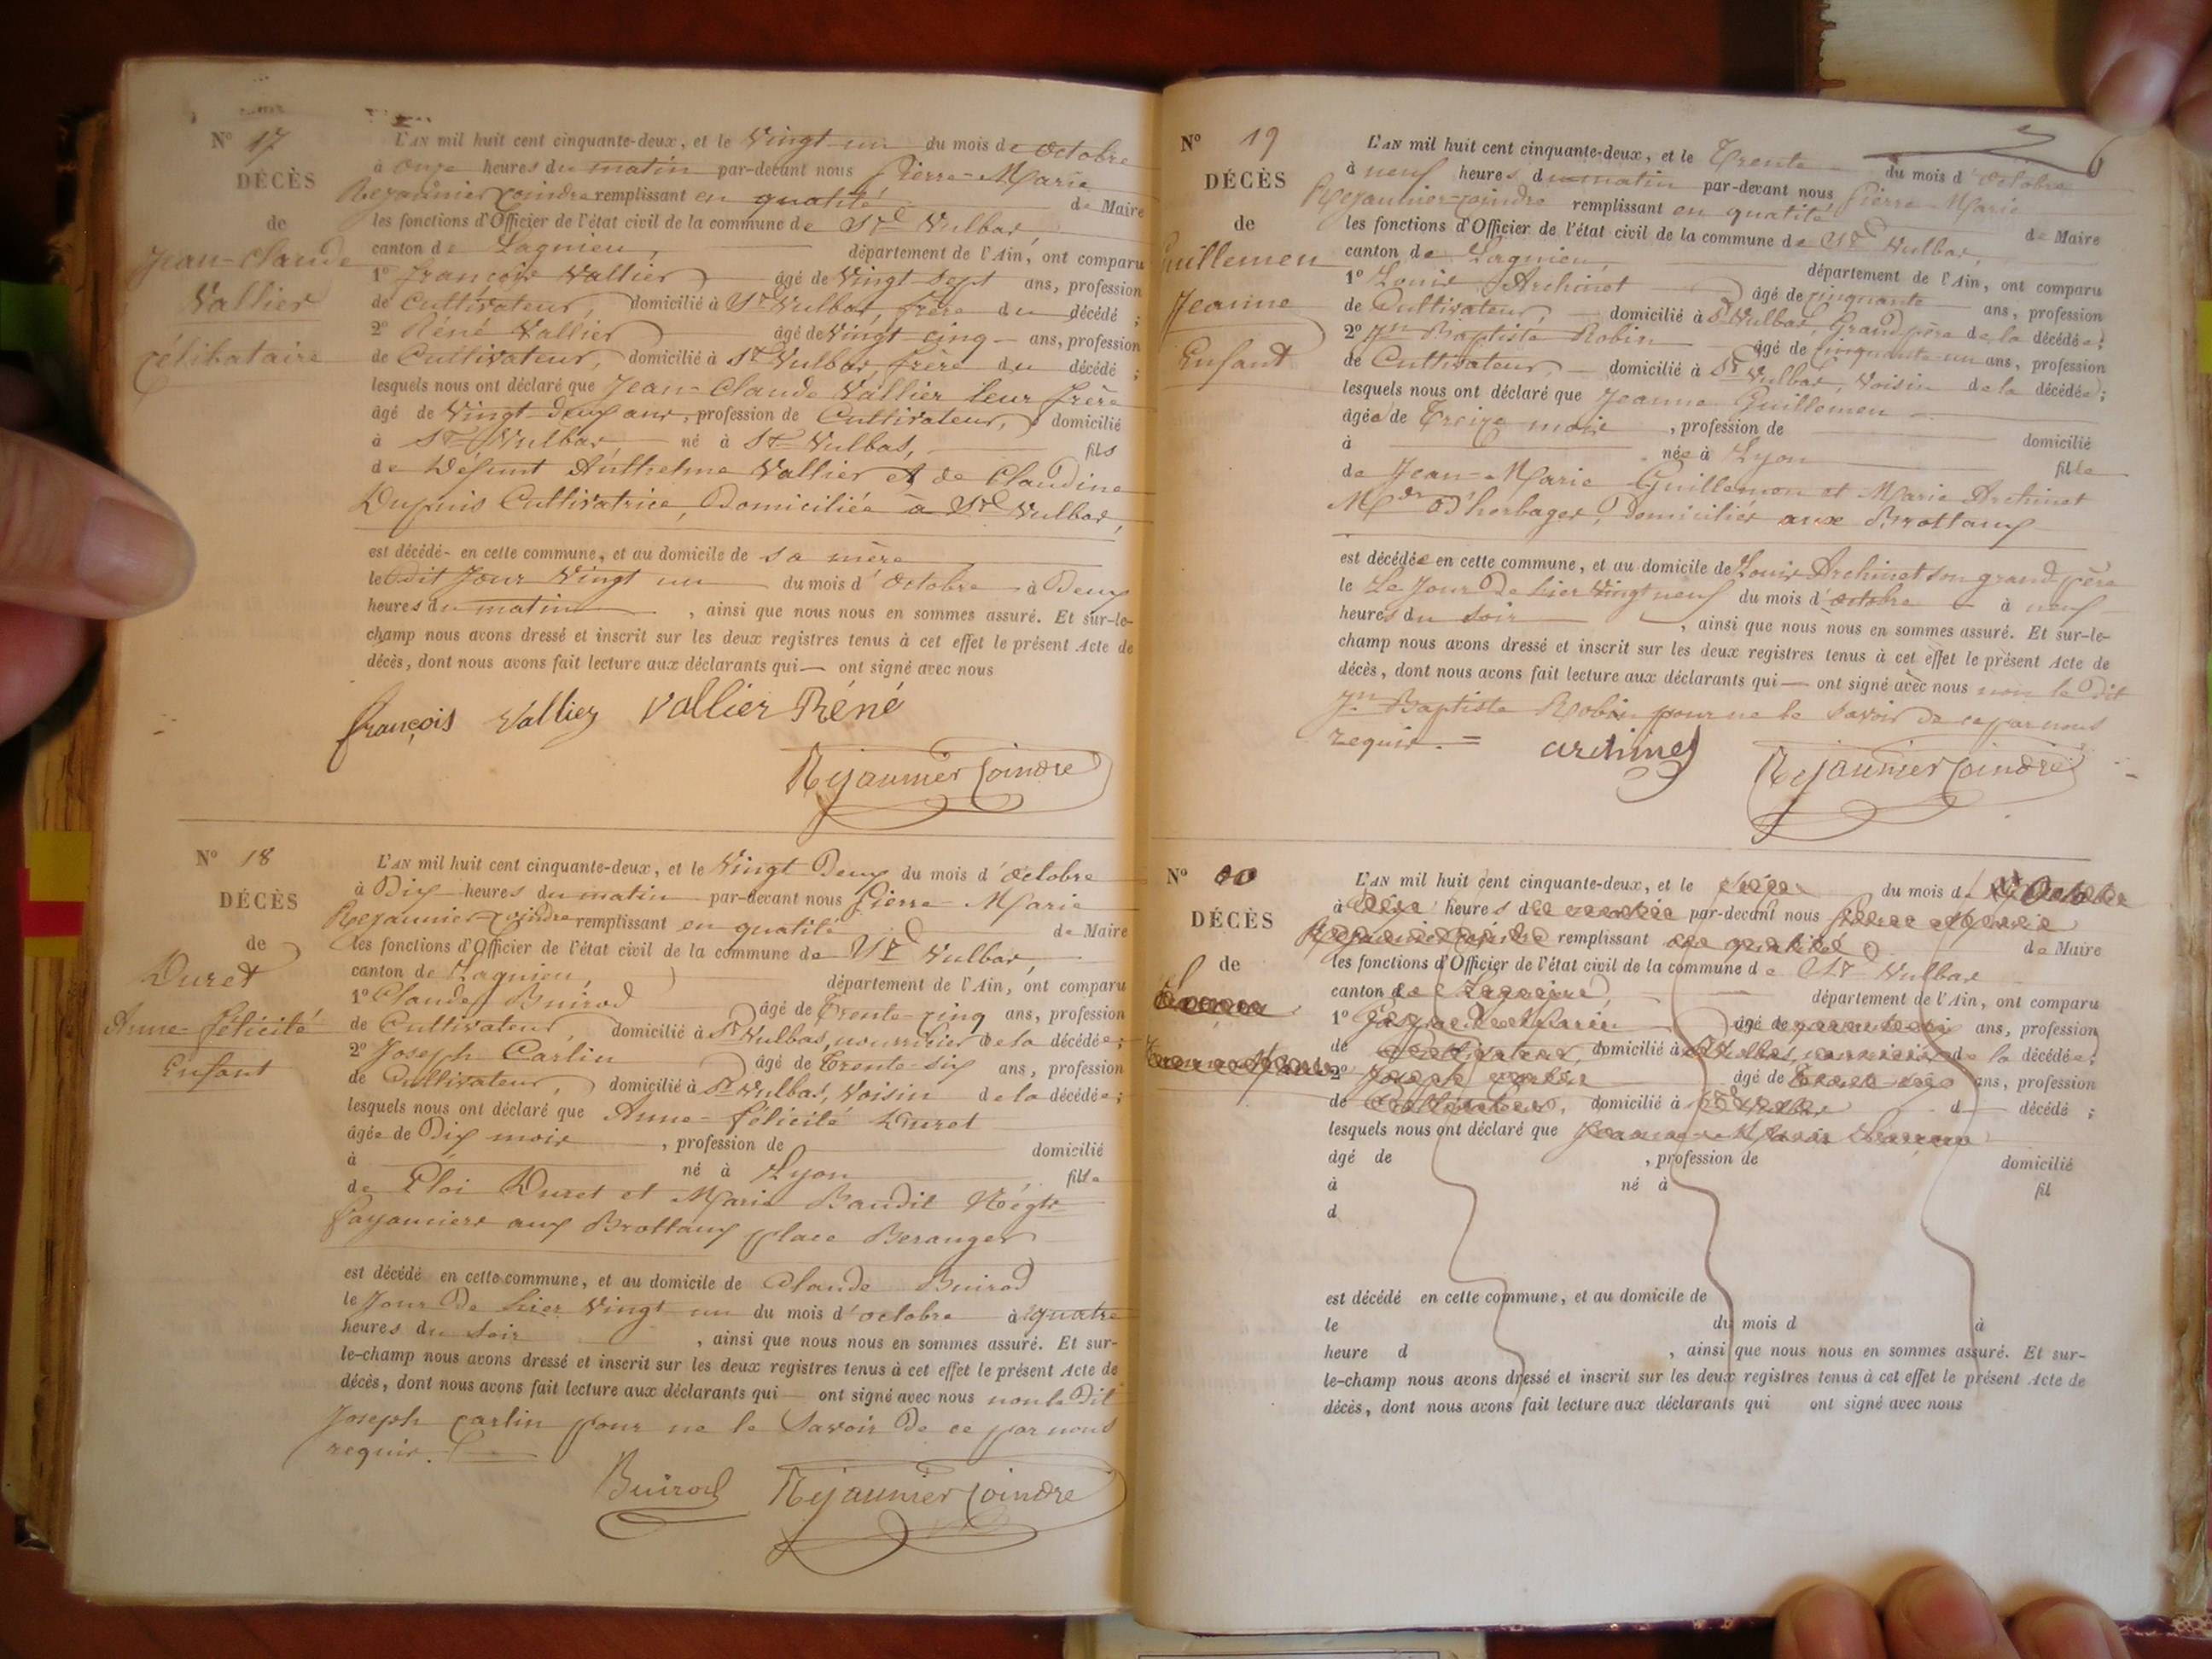 N° 17
DÉCÈS
de
Jean-Claude
Vallier
célibataire
L'AN mil huit cent cinquante-deux, et le Vingt-un du mois de octobre
à onze heures du matin par-devant nous Pierre-Marie
Rejaunier Coindre remplissant en qualité de Maire
les fonctions d'Officier de l'état civil de la commune de St Vulbas,
canton de Lagnieu, département de l'Ain, ont comparu
1° François Vallier âgé de Vingt-Sept ans, profession
de Cultivateur, domicilié à St Vulbas, frère du décédé ;
2° Réné Vallier âgé de Vingt-cinq ans, profession
de Cultivateur, domicilié à St Vulbas, frère du décédé ;
lesquels nous ont déclaré que Jean-Claude Vallier leur frère
âgé de Vingt-deux ans, profession de Cultivateur, domicilié
à St Vulbas, né à St Vulbas, fils
de Défunt Anthelme Vallier et de Claudine
Dupuis Cultivatrice, Domiciliée à St Vulbas,
est décédé en cette commune, et au domicile de sa mère
le Dit Jour Vingt un du mois d'octobre à Deux
heures du matin, ainsi que nous nous en sommes assuré. Et sur-le-
champ nous avons dressé et inscrit sur les deux registres tenus à cet effet le présent Acte de
décès, dont nous avons fait lecture aux déclarants qui — ont signé avec nous
françois Vallier Vallier Réné
Rejaunier Coindre
N° 18
DÉCÈS
de
Duret
Anne-félicité
Enfant
L'AN mil huit cent cinquante-deux, et le Vingt Deux du mois d'octobre
à Dix heures du matin par-devant nous Pierre-Marie
Rejaunier-Coindre remplissant en qualité de Maire
les fonctions d'Officier de l'état civil de la commune de St Vulbas,
canton de Lagnieu, département de l'Ain, ont comparu
1° Claude Buirod âgé de Trente-cinq ans, profession
de Cultivateur, domicilié à St Vulbas, nourricier de la décédée ;
2° Joseph Carlin âgé de trente-six ans, profession
de Cultivateur, domicilié à St Vulbas, Voisin de la décédée ;
lesquels nous ont déclaré que Anne-félicité Duret
âgée de Dix mois, profession de domicilié
à né à Lyon fille
de Eloi Duret et Marie Baudit
aux Brottaux place Beranger
est décédé en cette commune, et au domicile de Claude Buirod
le Jour De hier Vingt-un du mois d'octobre à quatre
heures du Soir, ainsi que nous nous en sommes assuré. Et sur-
le-champ nous avons dressé et inscrit sur les deux registres tenus à cet effet le présent Acte de
décès, dont nous avons fait lecture aux déclarants qui — ont signé avec nous non le Dit
Joseph Carlin pour ne le Savoir De ce par nous
requis.
Buirod Rejaunier Coindre
N° 19
DÉCÈS
de
Guillemen
Jeanne
Enfant
L'AN mil huit cent cinquante-deux, et le Trente du mois d'octobre
à neuf heures du matin par-devant nous Pierre-Marie
Rejaunier-Coindre remplissant en qualité de Maire
les fonctions d'Officier de l'état civil de la commune de St Vulbas,
canton de Lagnieu, département de l'Ain, ont comparu
1° Louis Archinet âgé de cinquante ans, profession
de Cultivateur, domicilié à St Vulbas, Grand père de la décédée ;
2° Jn Baptiste Robin âgé de cinquante-un ans, profession
de Cultivateur, domicilié à St Vulbas, Voisin de la décédée ;
lesquels nous ont déclaré que Jeanne Guillemen
âgée de Treize mois, profession de domicilié
à née à Lyon fille
de Jean-Marie Guillemen et Marie Archinet
Mds D'herbages, Domiciliés aux Brottaux
est décédée en cette commune, et au domicile de Louis Archinet son grand père
le Le Jour De hier Vingt neuf du mois d'octobre à neuf
heures du soir, ainsi que nous nous en sommes assuré. Et sur-le-
champ nous avons dressé et inscrit sur les deux registres tenus à cet effet le présent Acte de
décès, dont nous avons fait lecture aux déclarants qui — ont signé avec nous non le Dit
Jn Baptiste Robin pour ne le Savoir de ce par nous
requis. = archinet Rejaunier Coindre
N°
DÉCÈS
de
L'AN mil huit cent cinquante-deux, et le du mois d Octobre
à heures d par-devant nous
remplissant de Maire
les fonctions d'Officier de l'état civil de la commune de St Vulbas
canton de Lagnieu, département de l'Ain, ont comparu
1° âgé de ans, profession
de Cultivateur, domicilié à de la décédée ;
2° Joseph Carlin âgé de ans, profession
de Cultivateur, domicilié à d décédé ;
lesquels nous ont déclaré que
âgé de , profession de domicilié
à né à fil
d
est décédé en cette commune, et au domicile de
le du mois d à
heure d , ainsi que nous nous en sommes assuré. Et sur-
le-champ nous avons dressé et inscrit sur les deux registres tenus à cet effet le présent Acte de
décès, dont nous avons fait lecture aux déclarants qui ont signé avec nous